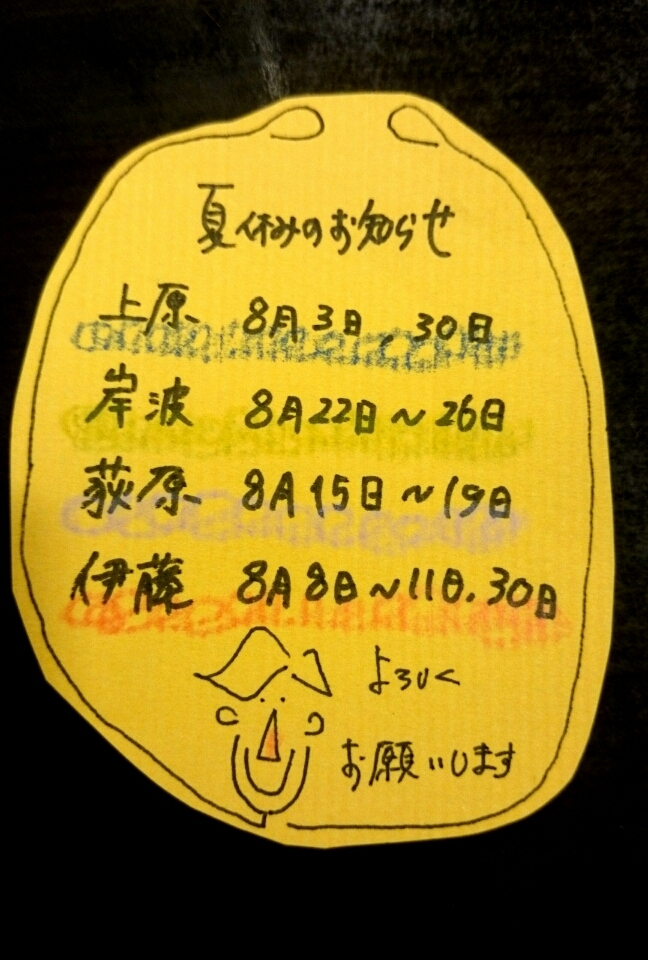 夏休みのお知らせ
上原 8月3日、30日
岸波 8月22日～26日
荻原 8月15日～19日
伊藤 8月8日～11日.30日
よろしく
お願いします